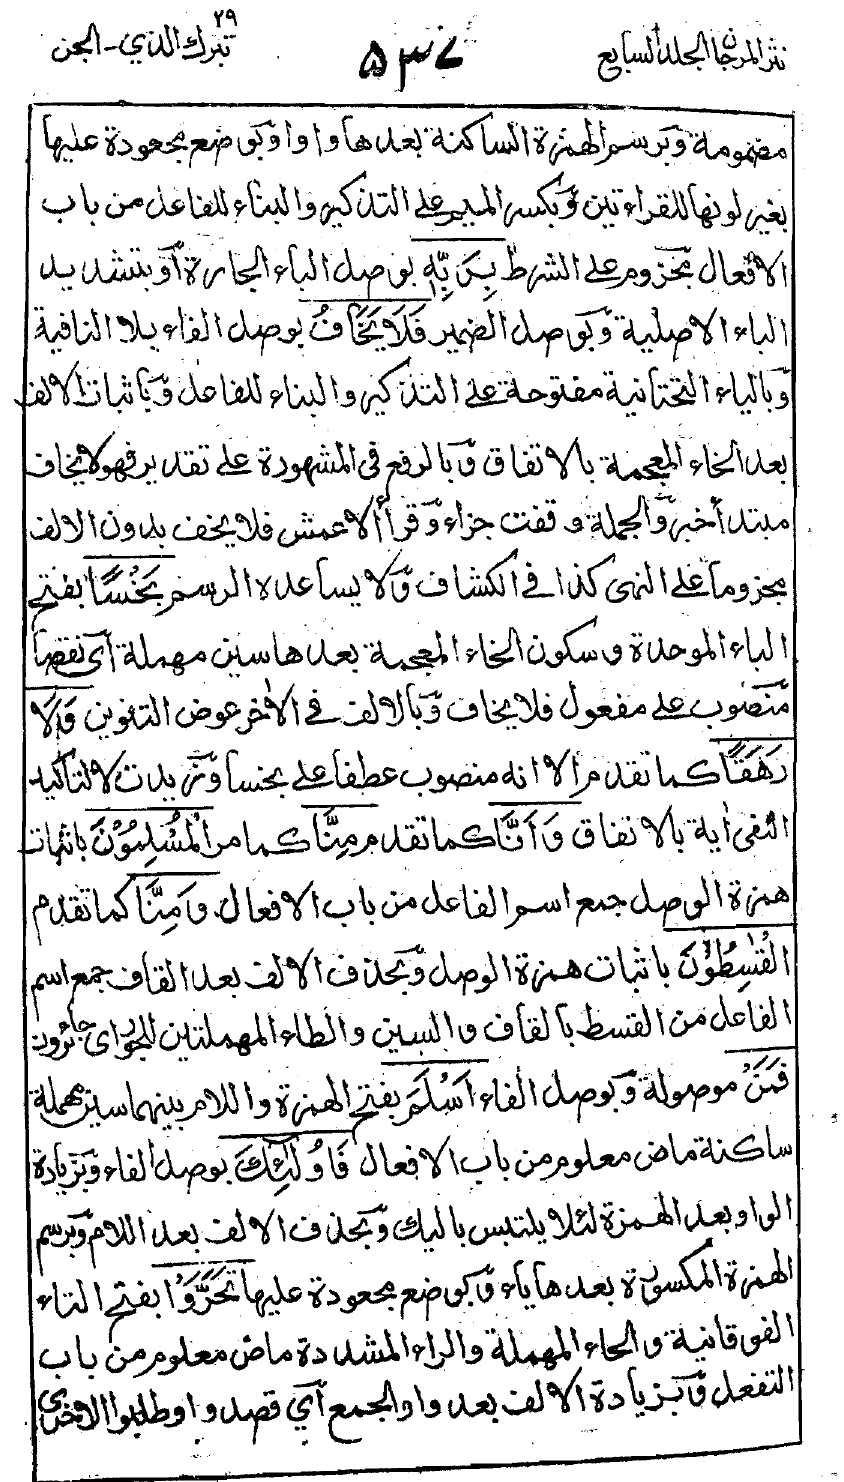 نثر المرجان الجلد السابع
٥٣٧
٢٩
تبرك الذي - الجن
مضمومة وبرسم الهمزة الساكنة بعدها واوا وبوضع مجعودة عليها
بغير لونها للقراءتين وبكسر الميم على التذكير والبناء للفاعل من باب
الافعال مجزوم على الشرط بِرَبِّهٖ بوصل الباء الجارة أو بتشديد
الباء الاصلية وبوصل الضمير فَلَا يَخَافُ بوصل الفاء بلا النافية
وبالياء التحتانية مفتوحة على التذكير والبناء للفاعل وباثبات الالف
بعد الخاء المعجمة بالاتفاق وبالرفع في المشهودة على تقدير فهو لا يخاف
مبتدأ خبر والجملة وقعت جزاء وقرأ الاعمش فلا يخف بدون الالف
مجزوما على النهى كذا في الكشاف ولا يساعده الرسم بَخْسًا بفتح
الباء الموحدة وسكون الخاء المعجمة بعدها سين مهملة أي نقصا
منصوب على مفعول فلا يخاف وبالالف في الاٰخر عوض التنوين وَلَا
رَهَقًا كما تقدم الا انه منصوب عطفا على بخسا وزيدت لا لتاكيد
النفى اٰية بالاتفاق وَاَنَّا كما تقدم مِنَّا كما مر الْمُسْلِمُوْنَ باثبات
همزة الوصل جمع اسم الفاعل من باب الافعال وَمِنَّا كما تقدم
الْقٰسِطُوْنَ باثبات همزة الوصل وبحذف الالف بعد القاف جمع اسم
الفاعل من القسط بالقاف والسين والطاء المهملتين للجور اى جائرون
فَمَنْ موصولة وبوصل الفاء اَسْلَمَ بفتح الهمزة واللام بينهما سين مهملة
ساكنة ماض معلوم من باب الافعال فَاُولٰٓئِكَ بوصل الفاء وبزيادة
الواو بعد الهمزة لئلا يلتبس باليك وبحذف الالف بعد اللام وبرسم
الهمزة المكسورة بعدها ياء وبوضع مجعودة عليها تَحَرَّوْا بفتح التاء
الفوقانية والحاء المهملة والراء المشددة ماض معلوم من باب
التفعل وبزيادة الالف بعد واو الجمع أي قصدوا وطلبوا الاحرى